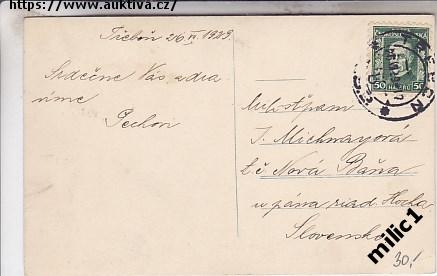 https://www.auktiva.cz/
Třeboň 26 1929
Srdečně Vás zdra-
víme
Pechon
50 50
TŘEBOŇ
J. Michnayová
t. č. Nová Baňa
u pána riad. Hocka
Slovensko
30,-
milic1